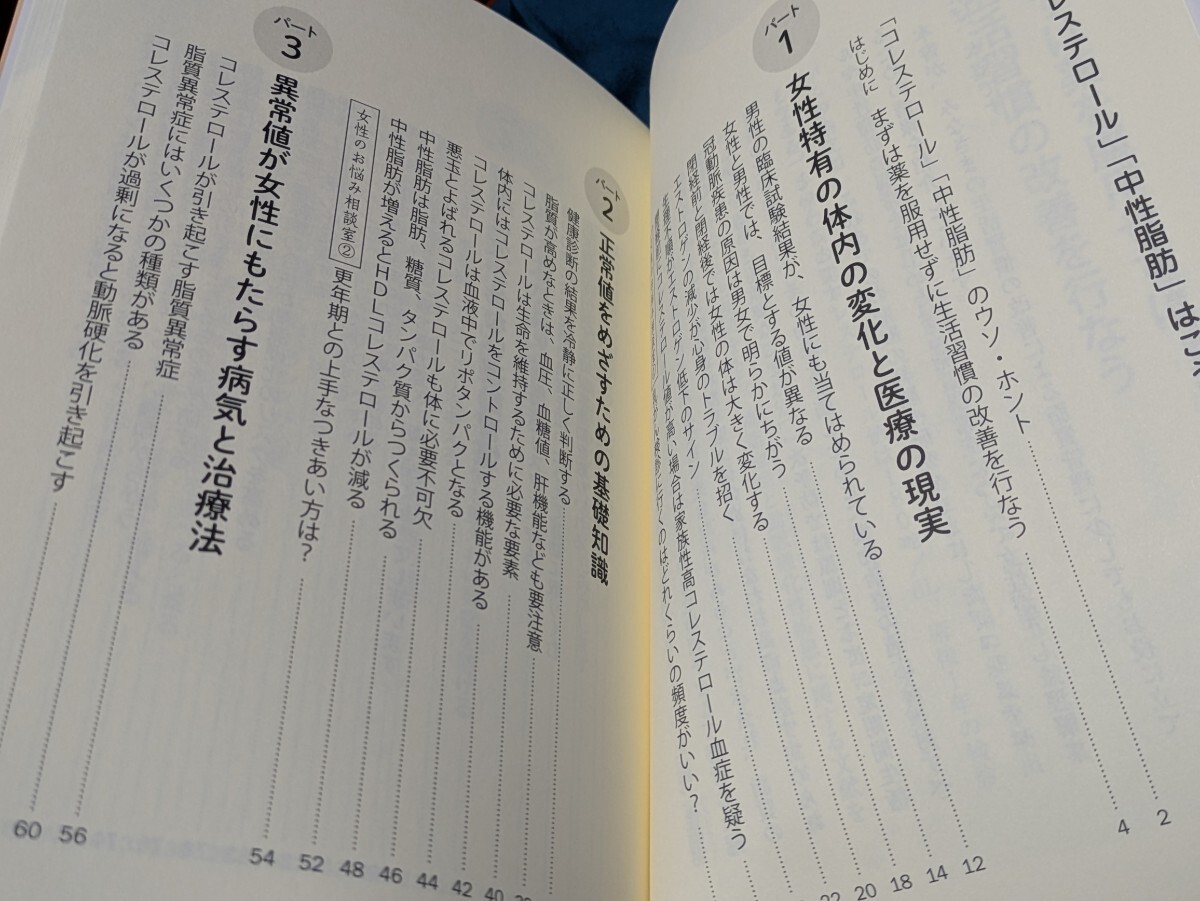 レステロール」「中性脂肪」は
「コレステロール」「中性脂肪」のウソ・ホント 2
はじめに まずは薬を服用せずに生活習慣の改善を行なう 4
パート1 女性特有の体内の変化と医療の現実
男性の臨床試験結果が、女性にも当てはめられている 12
女性と男性では、目標とする値が異なる 14
冠動脈疾患の原因は男女で明らかにちがう 18
閉経前と閉経後では女性の体は大きく変化する 20
エストロゲンの減少が心身のトラブルを招く 22
エストロゲン低下のサイン
コレステロール値が高い場合は家族性高コレステロール血症を疑う
行くのはどれくらいの頻度がいい?
パート2 正常値をめざすための基礎知識
健康診断の結果を冷静に正しく判断する
脂質が高めなときは、血圧、血糖値、肝機能なども要注意
コレステロールは生命を維持するために必要な要素 40
体内にはコレステロールをコントロールする機能がある 42
コレステロールは血液中でリポタンパクとなる 44
悪玉とよばれるコレステロールも体に必要不可欠 46
中性脂肪は脂肪、糖質、タンパク質からつくられる 48
中性脂肪が増えるとHDLコレステロールが減る 52
女性のお悩み相談室② 更年期との上手なつきあい方は? 54
パート3 異常値が女性にもたらす病気と治療法
コレステロールが引き起こす脂質異常症
脂質異常症にはいくつかの種類がある 56
コレステロールが過剰になると動脈硬化を引き起こす 60